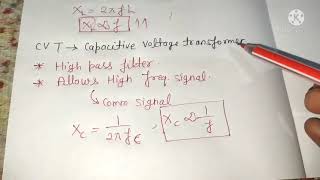 X_L = 2πfL
X_L ∝ f ↑↑
CVT → Capacitive Voltage transformer
* High pass filter
* Allows High freq. signal.
↳ Comm signal
X_C = 1/2πfC
X_C ∝ 1/f